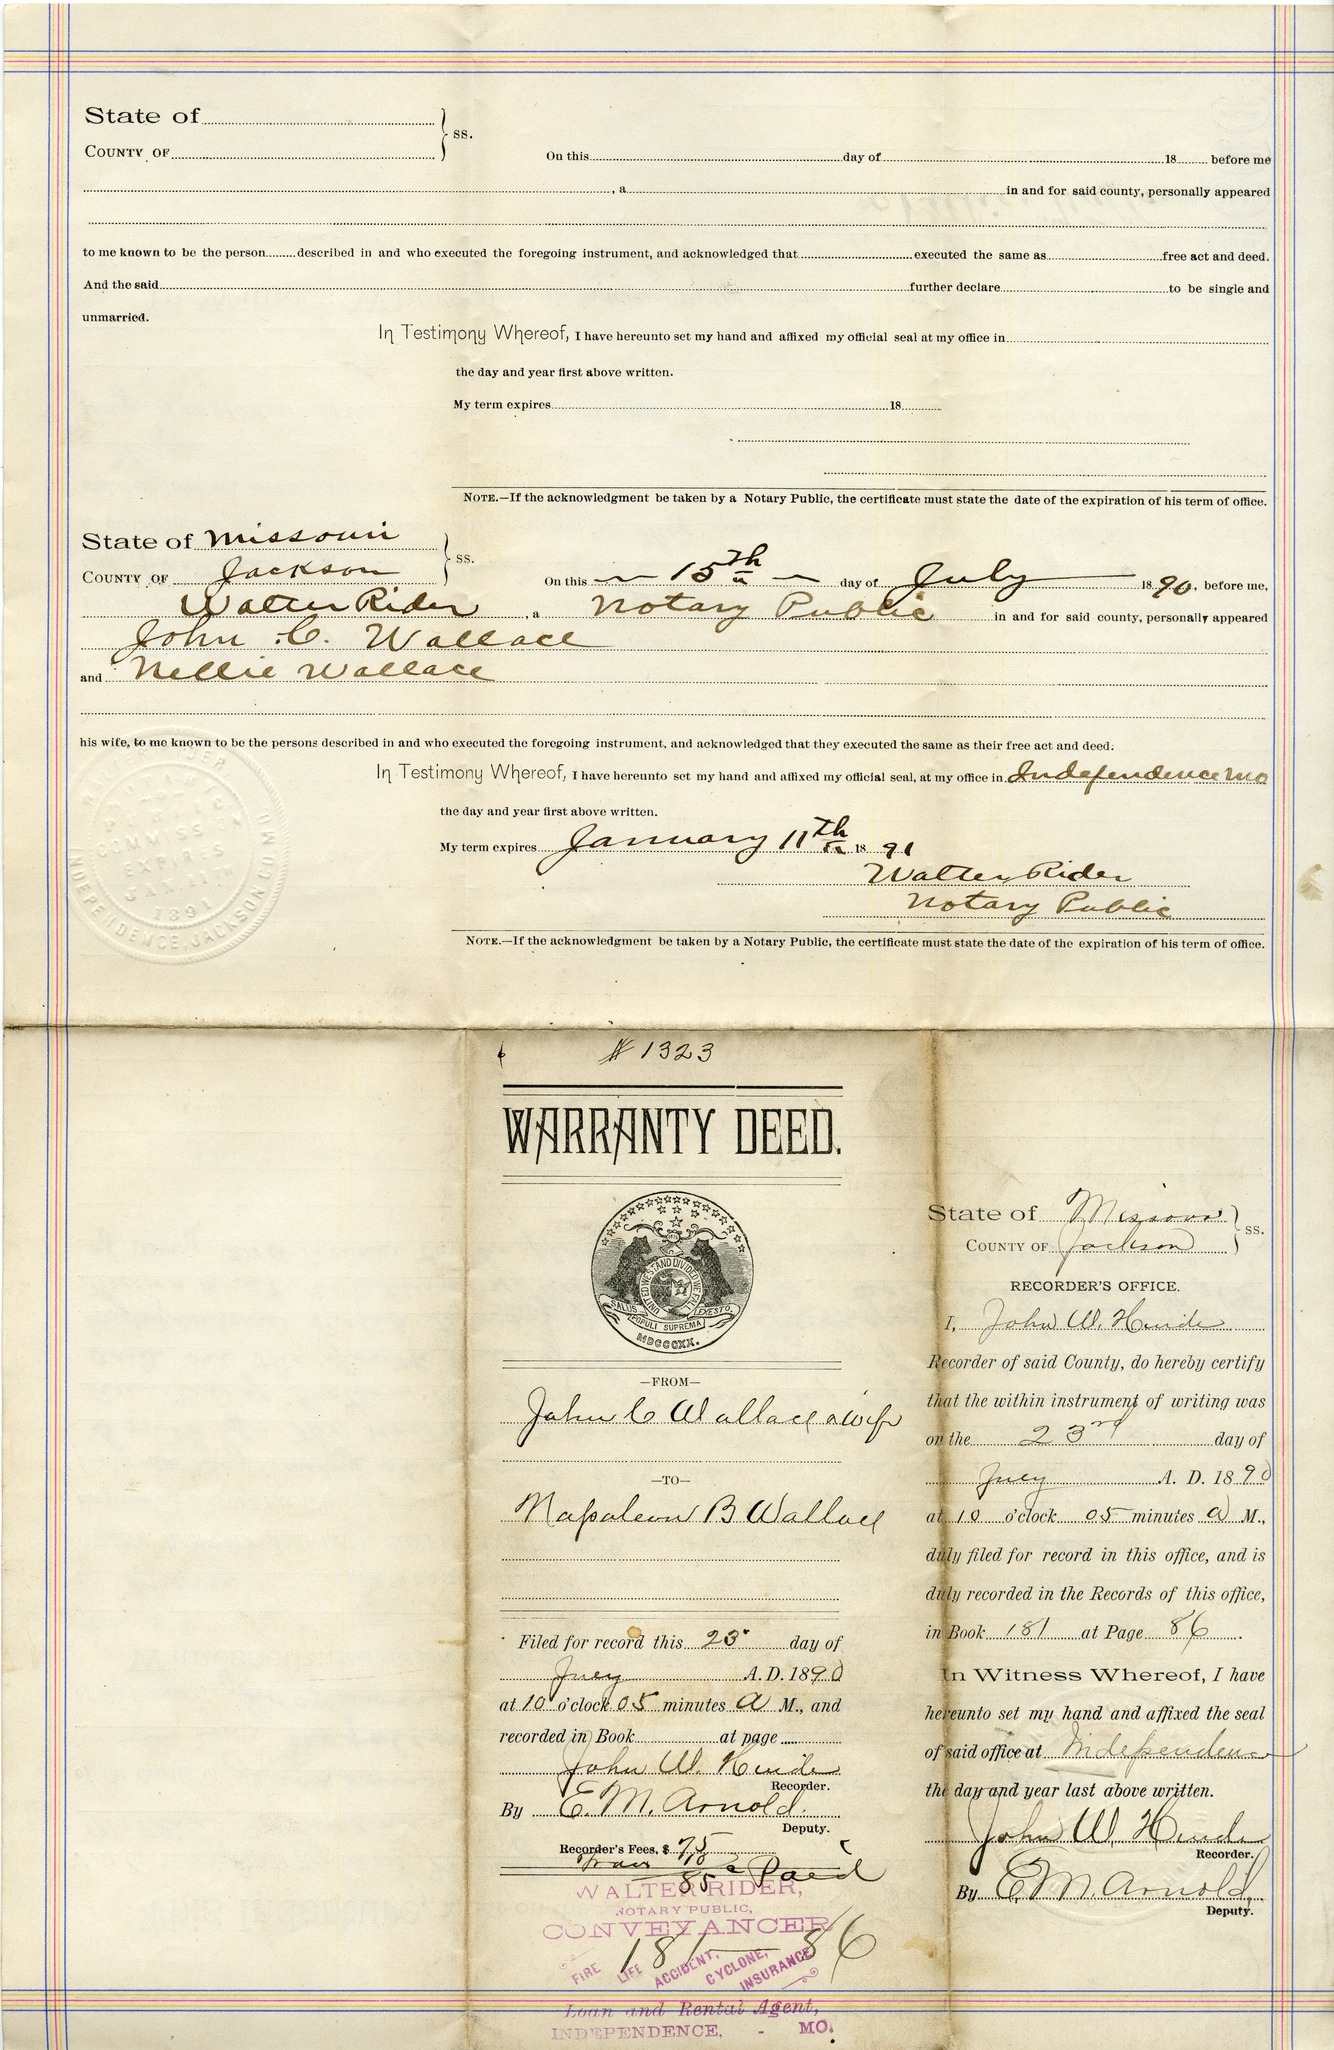 State of
COUNTY OF
ss.
On this day of 18 before me
, a in and for said county, personally appeared
to me known to be the person described in and who executed the foregoing instrument, and acknowledged that executed the same as free act and deed.
And the said further declare to be single and
unmarried.
In Testimony Whereof, I have hereunto set my hand and affixed my official seal at my office in
the day and year first above written.
My term expires 18
NOTE.—If the acknowledgment be taken by a Notary Public, the certificate must state the date of the expiration of his term of office.
State of Missouri
COUNTY OF Jackson
ss.
On this 15th day of July 1890, before me,
Walter Rider, a Notary Public in and for said county, personally appeared
John C. Wallace
and Nellie Wallace
his wife, to me known to be the persons described in and who executed the foregoing instrument, and acknowledged that they executed the same as their free act and deed.
In Testimony Whereof, I have hereunto set my hand and affixed my official seal, at my office in Independence Mo
the day and year first above written.
My term expires January 11th 1891
Walter Rider
Notary Public
NOTE.—If the acknowledgment be taken by a Notary Public, the certificate must state the date of the expiration of his term of office.
WALTER RIDER,
NOTARY PUBLIC
COMMISSION
EXPIRES
JAN 11TH
1891
INDEPENDENCE, JACKSON CO. MO
# 1323
WARRANTY DEED.
UNITED WE STAND DIVIDED WE FALL
SALUS POPULI SUPREMA LEX ESTO.
MDCCCXX.
—FROM—
John C Wallace & Wife
—TO—
Napoleon B Wallace
Filed for record this 23 day of
July A. D. 1890
at 10 o'clock 05 minutes A M., and
recorded in Book at page
John W. Hinde
Recorder.
By E. M. Arnold.
Deputy.
Recorder's Fees, $ 75
10
85 Paid
WALTER RIDER,
NOTARY PUBLIC,
CONVEYANCER
181—86
FIRE LIFE ACCIDENT, CYCLONE, INSURANCE
Loan and Rental Agent,
INDEPENDENCE, - MO.
State of Missouri
COUNTY OF Jackson
ss.
RECORDER'S OFFICE.
I, John W. Hinde
Recorder of said County, do hereby certify
that the within instrument of writing was
on the 23rd day of
July A. D. 1890
at 10 o'clock 05 minutes A M.,
duly filed for record in this office, and is
duly recorded in the Records of this office,
in Book 181 at Page 86.
In Witness Whereof, I have
hereunto set my hand and affixed the seal
of said office at Independence
the day and year last above written.
John W. Hinde
Recorder.
By E. M. Arnold,
Deputy.